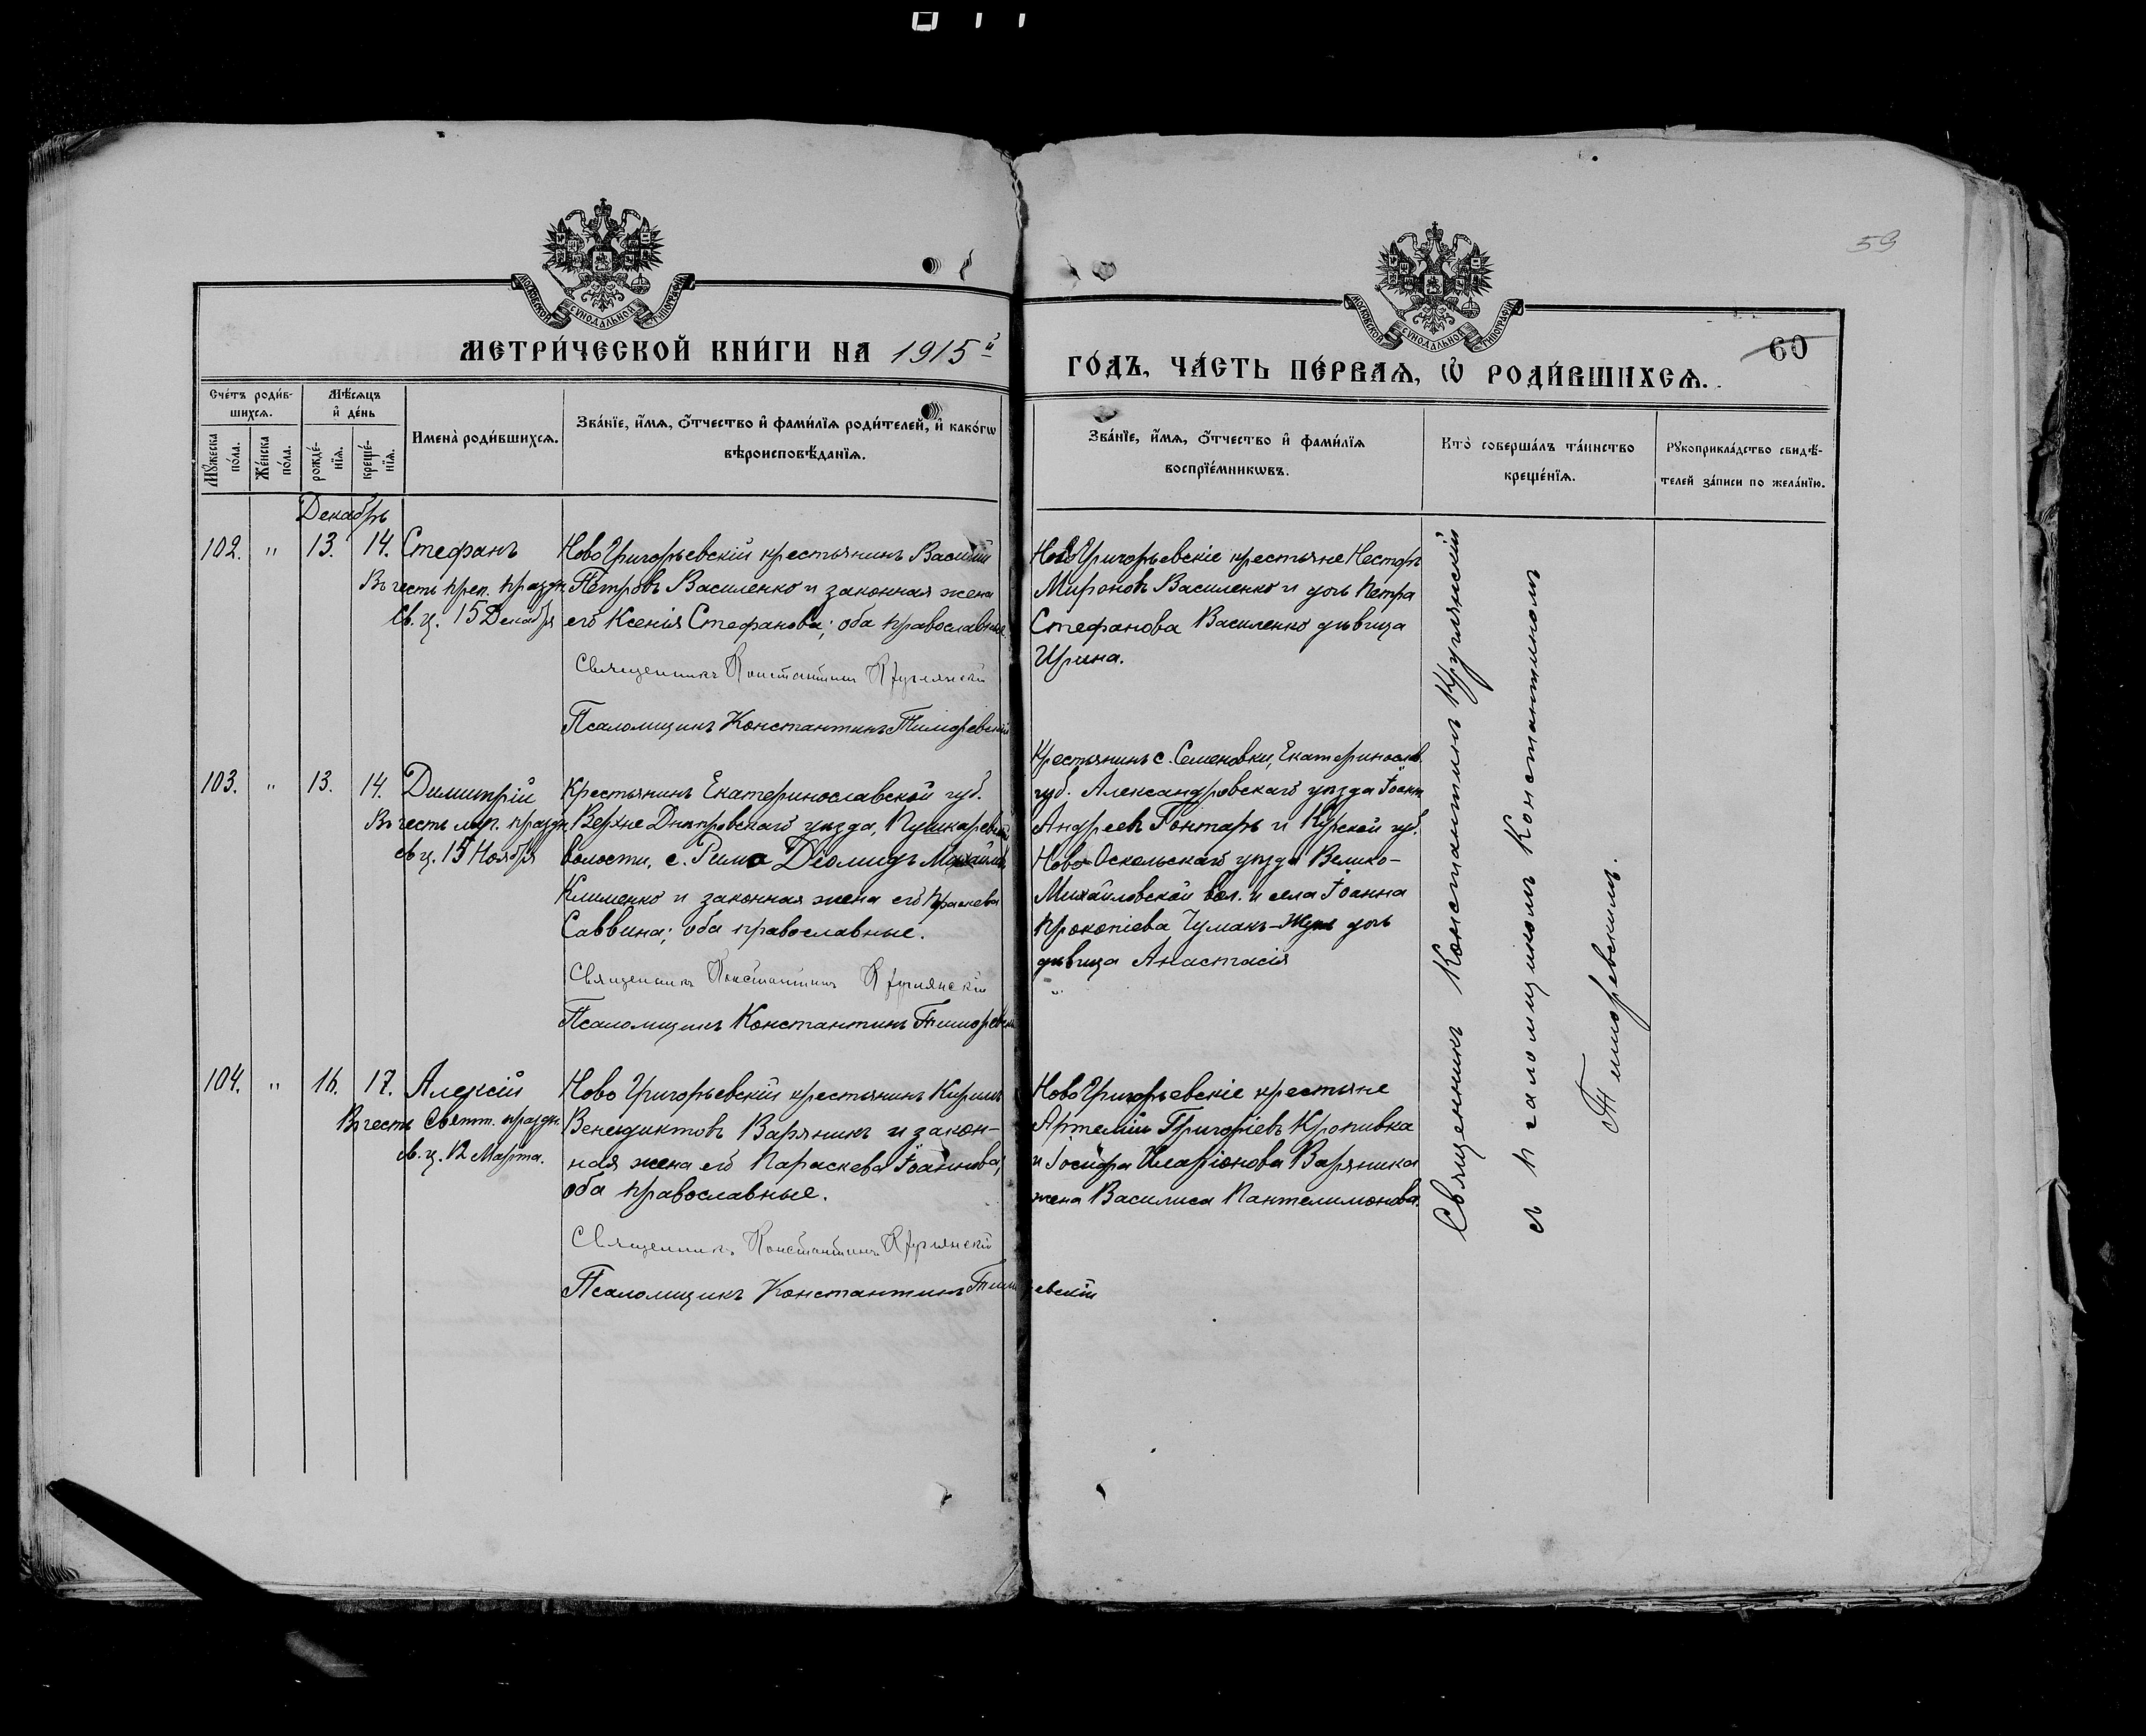 59
МОСКОВСКОЙ СѴНОДАЛЬНОЙ ТИПОГРАФІИ
МОСКОВСКОЙ СѴНОДАЛЬНОЙ ТИПОГРАФІИ
МЕТРИ́ЧЕСКОЙ КНИ́ГИ НА 1915 й
ГО́ДЪ, ЧА́СТЬ ПЕ́РВАѦ, Ѽ РОДИ́ВШИХСѦ.
60
Сче́тъ роди́в-
шихсѧ.
Мѣ́сѧцъ
и҆ де́нь
Мꙋ́жеска по́ла.
Же́нска по́ла.
рожде́-
нїѧ.
креще́-
нїѧ.
Имена̀ роди́вшихсѧ.
Зва́нїе, и҆́мѧ, ѻ҆́тчество и҆ фами́лїѧ роди́телей, и҆ како́гѡ
вѣроисповѣ́данїѧ.
Зва́нїе, и҆́мѧ, ѻ҆́тчество и҆ фами́лїѧ
воспрїе́мникѡвъ.
Кто̀ соверша́лъ та́инство
креще́нїѧ.
Рꙋкоприкла́дство свидѣ́-
телей за́писи по жела́нїю.
Декабрь
102. " 13. 14. Стефанъ
Въ честь преп. праздн.
св. ц. 15 Декабря
НовоГригорьевскій крестьянинъ Василій
Петровъ Василенко и законная жена
его Ксенія Стефанова; оба православные.
Священникъ Константинъ Круглянскій
Псаломщикъ Константинъ Тиморевскій
НовоГригорьевскіе крестьяне Несторъ
Мироновъ Василенко и дочь Петра
Стефанова Василенко дѣвица
Ирина.
103. " 13. 14. Димитрій
Въ честь муч. праздн.
св ц. 15 Ноября
Крестьянинъ Екатеринославской губ.
Верхне Днѣпровскаго уѣзда, Пушкаревской
волости, с. Діомидъ Михайловъ
Клименко и законная жена его Параскева
Саввина; оба православные.
Священникъ Константинъ Круглянскій
Псаломщикъ Константинъ Тиморевскій
Крестьянинъ с. Семеновки, Екатеринослав.
губ. Александровскаго уѣзда Іоаннъ
Андреевъ Гонтарь и Курской губ.
Ново-Оскольскаго уѣзда Велико-
Михайловской вол. и села Іоанна
Прокопіева Чумакъ- дочь
дѣвица Анастасія
"
104. " 16. 17. Алексій
Въ честь Святит. праздн.
св. ц. 12 Марта.
Ново Григорьевскій крестьянинъ Кириллъ
Венедиктовъ Варяникъ и закон-
ная жена его Параскева Іоаннова;
оба православные.
Священникъ Константинъ Круглянскій
Псаломщикъ Константинъ Тиморевскій
НовоГригорьевскіе крестьяне
Артемій Григоріевъ Кропивка
и Іосифа Иларіонова Варяника
жена Василиса Пантелимонова.
Священникъ Константинъ Круглянскій
съ псаломщикомъ Константиномъ
Тиморевскимъ.